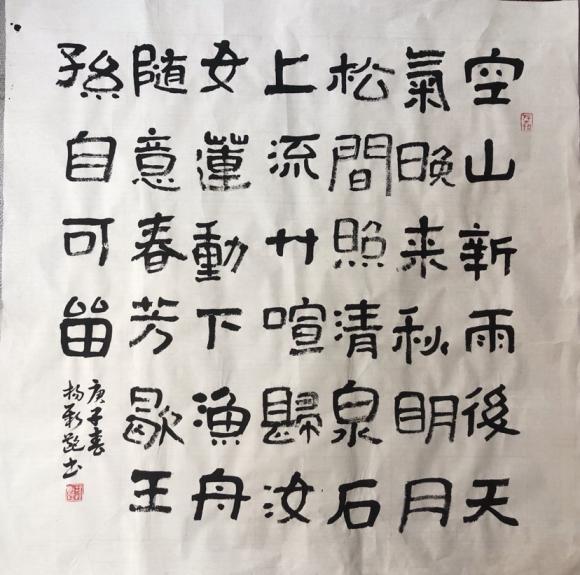 空山新雨後天
氣晚来秋明月
松間照清泉石
上流竹喧歸汝
女蓮動下漁舟
随意春芳歇王
孫自可留
庚子春
书